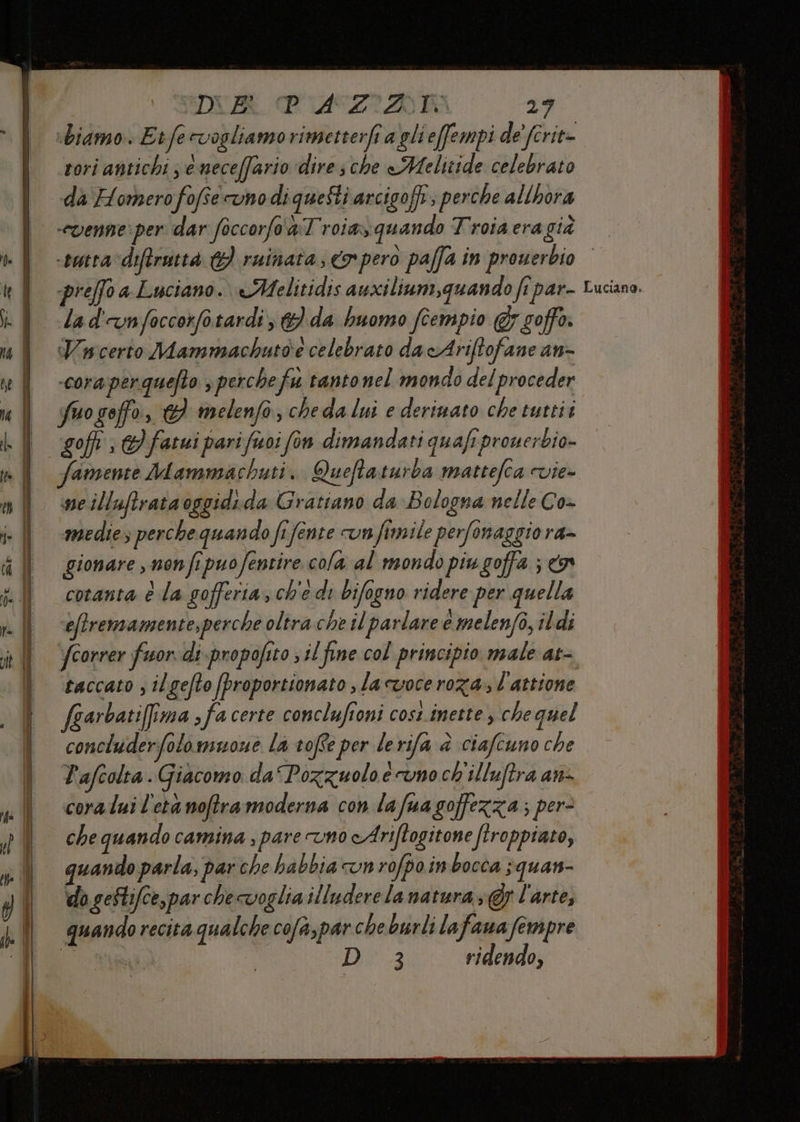 DE PAZZI. 27
biamo. Et ſe vogliamo rimetterſi a gli eſſempi de' ſcrit-
tori antichi, è neceſſario dire, che Melitide celebrato
da Homero foſſe vno di queſti arcigoffi, perche allhora
venne per dar ſoccorſo à Troia, quando Troia era già
tutta diſtrutta & ruinata, & però paſſa in prouerbio
preſſo a Luciano. Melitidis auxilium, quando ſi par-
Luciano.
la d'vn ſoccorſo tardi, & da huomo ſcempio & goffo.
Vn certo Mammachuto è celebrato da Ariſtofane an-
cora per queſto, perche fù tanto nel mondo del proceder
ſuo goffo, & melenſo, che da lui e deriuato che tutti i
goffi, & fatui pari ſuoi ſon dimandati quaſi prouerbio-
ſamente Mammachuti. Queſta turba matteſca vie-
ne illuſtrata oggidì da Gratiano da Bologna nelle Co-
medie, perche quando ſi ſente vn ſimile perſonaggio ra-
gionare, non ſi può ſentire coſa al mondo piu goffa; &
cotanta è la gofferia, ch'è di biſogno ridere per quella
eſtremamente, perche oltra che il parlare è melenſo, il di
ſcorrer fuor di propoſito, il fine col principio male at-
taccato, il geſto ſproportionato, la voce roza, l'attione
ſgarbatiſſima, fa certe concluſioni così inette, che quel
concluder ſolo muoue la toſſe per le riſa à ciaſcuno che
l'aſcolta. Giacomo da Pozzuolo è vno ch'illuſtra an-
cora lui l'età noſtra moderna con la ſua goffezza; per-
che quando camina, pare vno Ariſtogitone ſtroppiato,
quando parla, par che habbia vn roſpo in bocca; quan-
do geſtiſce, par che voglia illudere la natura, & l'arte,
quando recita qualche coſa, par che burli la faua ſempre
D 3 ridendo,